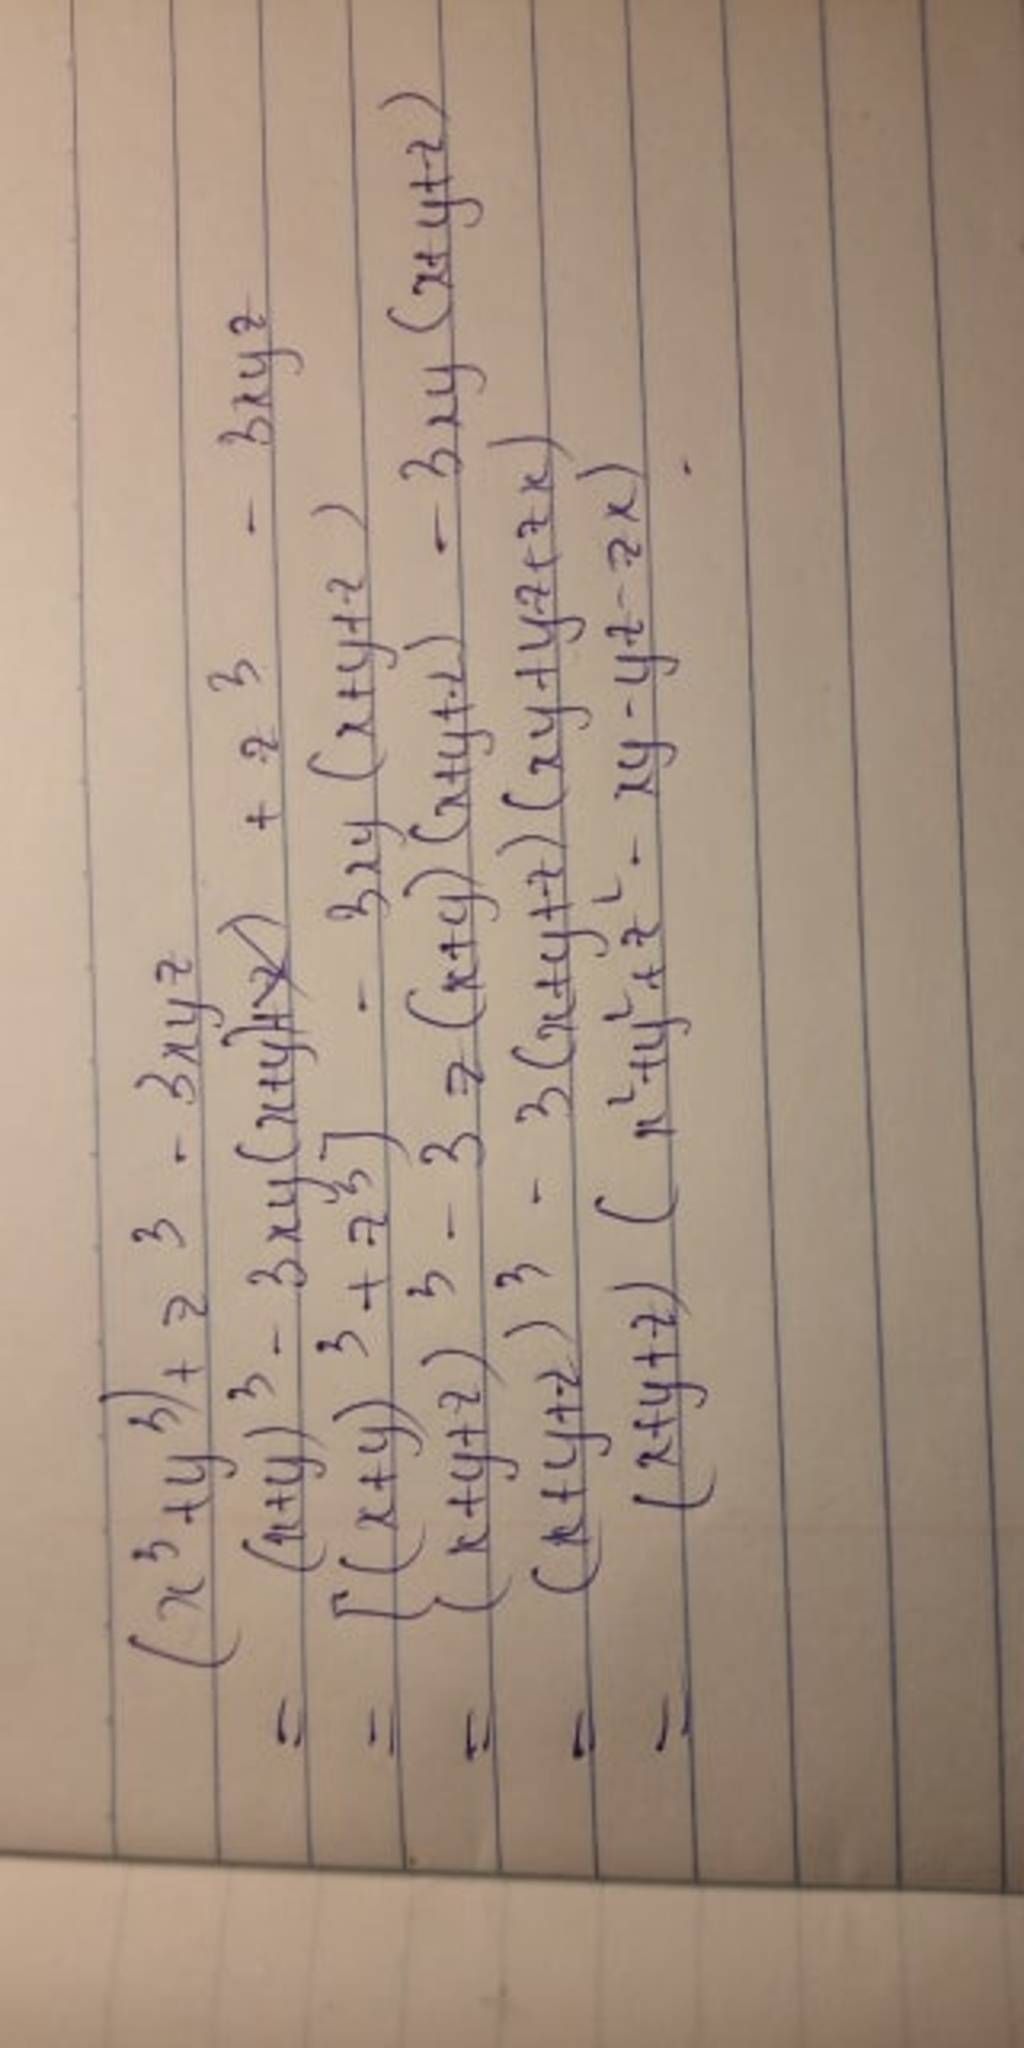 (x³+y³)+z³-3xyz
= (x+y)³-3xy(x+y) + z³ - 3xyz
= [(x+y)³+z³] - 3xy(x+y+z)
= (x+y+z)³-3z(x+y)(x+y+z) - 3xy(x+y+z)
= (x+y+z)³-3(x+y+z)(xy+yz+zx)
= (x+y+z)(x²+y²+z²-xy-yz-zx)